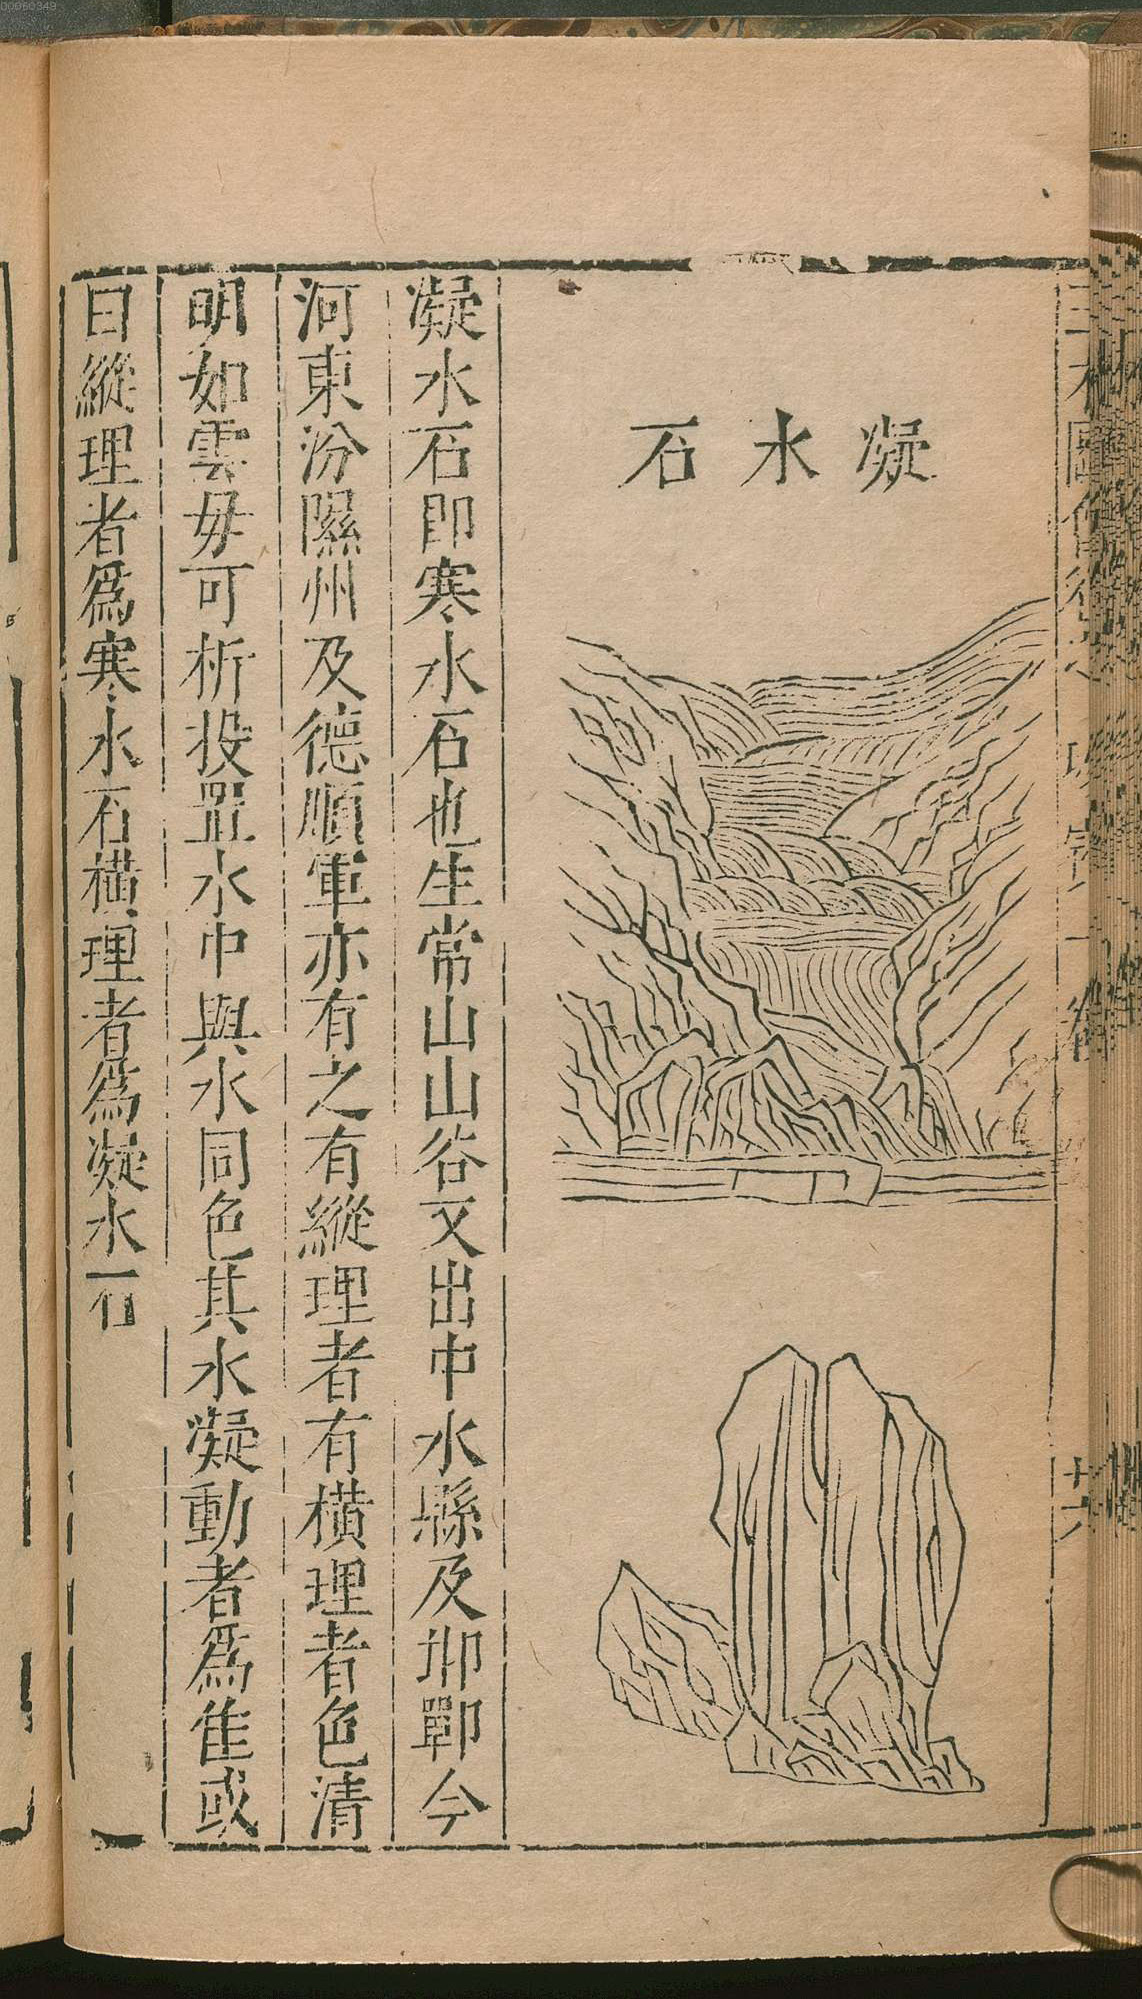 凝水石
凝水石即寒水石也生常山山谷又出中水縣及邯鄲今
河東汾隰州及德順軍亦有之有縱理者有橫理者色清
明如雲毋可析投置水中與水同色其水凝動者爲隹或
曰縱理者爲寒水石橫理者爲凝水石
廿六
00060349